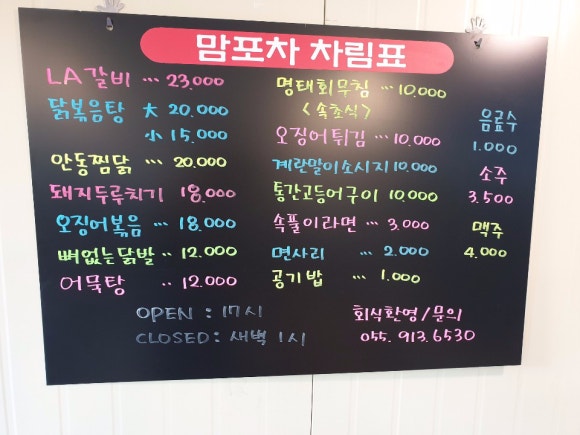 맘포차 차림표
LA갈비 ... 23.000
닭볶음탕 大 20.000
小 15.000
안동찜닭 ... 20.000
돼지두루치기 18.000
오징어볶음 ... 18.000
뼈없는닭발 .. 12.000
어묵탕 .. 12.000
명태회무침 ... 10.000
<속초식>
오징어튀김 ... 10.000
계란말이소시지 10.000
통간고등어구이 10.000
속풀이라면 ... 3.000
면사리 ... 2.000
공기밥 ... 1.000
음료수
1.000
소주
3.500
맥주
4.000
OPEN : 17시
CLOSED: 새벽 1시
회식환영/문의
055. 913. 6530